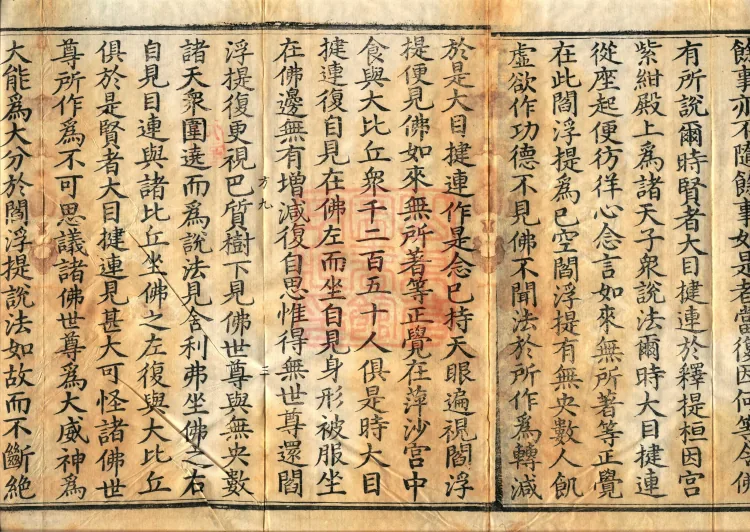 餘事亦不隨餘事如是者當復因何等令佛
有所說爾時賢者大目揵連於釋提桓因宮
紫紺殿上爲諸天子衆說法爾時大目揵連
從座起便彷徉心念言如來無所著等正覺
在此閻浮提爲已空閻浮提有無央數人飢
虛欲作功德不見佛不聞法於所作爲轉減
於是大目揵連作是念已持天眼遍視閻浮
提便見佛如來無所著等正覺在萍沙宮中
食與大比丘衆千二百五十人俱是時大目
揵連復自見在佛左而坐自見身形被服坐
在佛邊無有增減復自思惟得無世尊還閻
方九
浮提復更視巴質樹下見佛世尊與無央數
諸天衆圍遶而爲說法見舍利弗坐佛之右
自見目連與諸比丘坐佛之左復與大比丘
俱於是賢者大目揵連見甚大可怪諸佛世
尊所作爲不可思議諸佛世尊爲大威神爲
大能爲大分於閻浮提說法如故而不斷絕